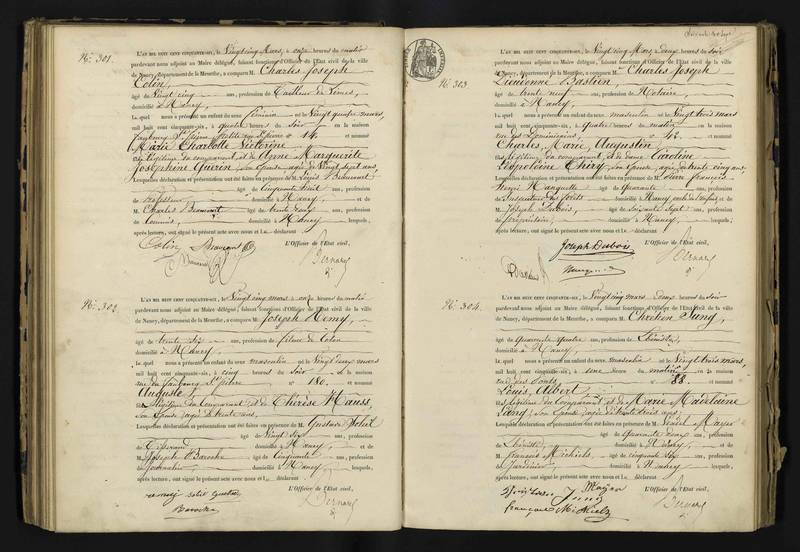 N° 301.
L'AN MIL HUIT CENT CINQUANTE-SIX, le Vingt cinq Mars, à onze heures du matin
pardevant nous adjoint au Maire délégué, faisant fonctions d'Officier de l'Etat civil de la ville
de Nancy, département de la Meurthe, a comparu M. Charles Joseph
Colin,
âgé de Vingt cinq ans, profession de Tailleur de
domicilié à Nancy,
Lequel nous a présenté un enfant du sexe féminin né le Vingt quatre mars,
mil huit cent cinquante-six, à quatre heures du soir en la maison
faubourg St Pierre n° 14 et nommé
Marie Charlotte Victorine
fille légitime du comparant et de Anne Marguerite
Joséphine Guérin, son épouse âgée de Vingt sept ans,
Lesquelles déclaration et présentation ont été faites en présence de M. Louis Beaumont
âgé de Cinquante huit ans, profession
de Professeur domicilié à Nancy, et de
M. Charles Beaumont âgé de trente deux ans, profession
de Commis, domicilié à Nancy lesquels,
après lecture, ont signé le présent acte avec nous et le déclarant
L'Officier de l'Etat civil,
Colin Beaumont
Bernard
N° 302.
L'AN MIL HUIT CENT CINQUANTE-SIX, le Vingt cinq mars à onze heures du matin
pardevant nous adjoint au Maire délégué, faisant fonctions d'Officier de l'Etat civil de la ville
de Nancy, département de la Meurthe, a comparu M. Joseph Remy,
âgé de trente six ans, profession de fileur de Coton
domicilié à Nancy,
Lequel nous a présenté un enfant du sexe masculin né le Vingt deux mars
mil huit cent cinquante-six, à cinq heures du soir en la maison
rue du faubourg St pierre n° 180. et nommé
Auguste
fils légitime du comparant et de Thérèse Mauss,
son épouse âgée de trente ans,
Lesquelles déclaration et présentation ont été faites en présence de M. Gustave
âgé de Vingt six ans, profession
de Tisserand domicilié à Nancy et de
M. Joseph Baroche âgé de Cinquante ans, profession
de Journalier domicilié à Nancy lesquels,
après lecture, ont signé le présent acte avec nous et le déclarant
L'Officier de l'Etat civil,
remy
Baroche
Bernard
N° 303
L'AN MIL HUIT CENT CINQUANTE-SIX, le Vingt cinq Mars à deux heures du soir
pardevant nous adjoint au Maire délégué, faisant fonctions d'Officier de l'Etat civil de la ville
de Nancy, département de la Meurthe, a comparu M. Charles Joseph
Dieudonné Bastien
âgé de trente neuf ans, profession de Notaire
domicilié à Nancy,
Lequel nous a présenté un enfant du sexe masculin né le Vingt trois mars
mil huit cent cinquante-six, à quatre heures du matin en la maison
rue des Dominicains n° 42. et nommé
Charles, Marie, Augustin
fils légitime du comparant et de dame Caroline
Léopoldine son épouse, âgée de trente cinq ans,
Lesquelles déclaration et présentation ont été faites en présence de M. Pierre françois
henri âgé de Quarante ans, profession
de Inspecteur des forêts domicilié à Nancy et de
M. Joseph Dubois, âgé de soixante sept ans, profession
de propriétaire, domicilié à Nancy, lesquels;
après lecture, ont signé le présent acte avec nous et le déclarant
L'Officier de l'Etat civil,
Joseph Dubois
Bernard
N° 304.
L'AN MIL HUIT CENT CINQUANTE-SIX, le Vingt cinq mars à deux heures du soir
pardevant nous adjoint au Maire délégué, faisant fonctions d'Officier de l'Etat civil de la ville
de Nancy, département de la Meurthe, a comparu M. Chrétien Jung
âgé de Quarante quatre ans, profession de Ebéniste,
domicilié à Nancy
Lequel nous a présenté un enfant du sexe masculin né le Vingt trois mars,
mil huit cent cinquante-six, à une heure du matin en la maison
rue des Ponts n° 88. et nommé
Louis, Albert
fils légitime du comparant et de Marie Madelaine
Jung, son épouse âgée de trente trois ans,
Lesquelles déclaration et présentation ont été faites en présence de M. Mayer
âgé de Quarante deux ans, profession
de Ebéniste domicilié à Nancy et de
M. françois Michiels, âgé de cinquante six ans, profession
de Jardinier domicilié à Nancy lesquels,
après lecture, ont signé le présent acte avec nous et le déclarant
L'Officier de l'Etat civil,
Mayer
Jung
françois Michiels
Bernard